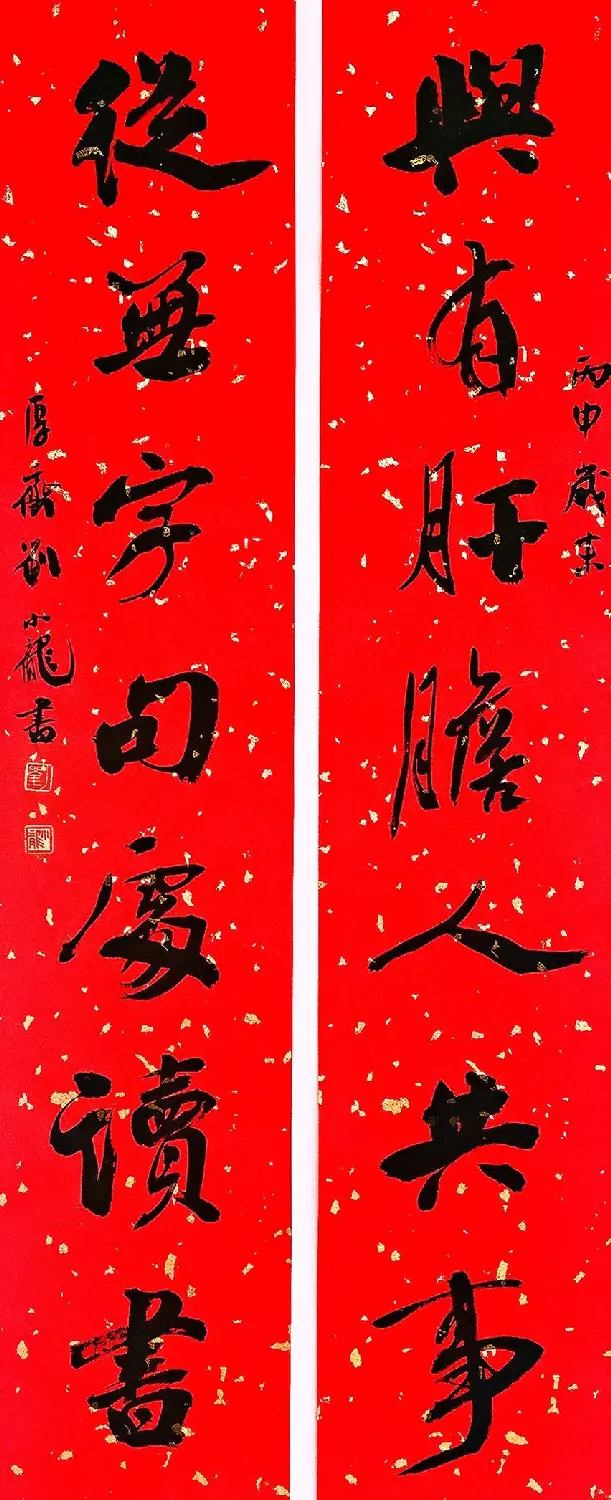 與有肝膽人共事
丙申歲
從無字句處讀書
厚齋劉小龍書